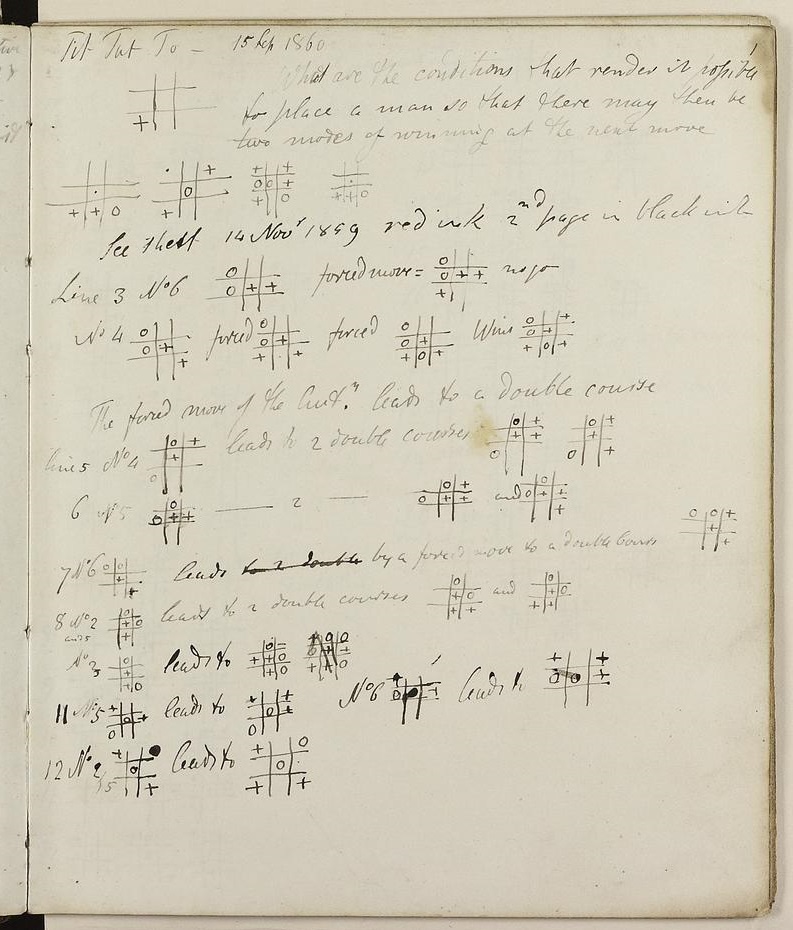 Tit Tat To – 15 Sep 1860
1
What are the conditions that render it possible
to place a man so that there may then be
two modes of winning at the next move
See 14 Nov 1859 red ink 2nd page in black ink
Line 3 No 6 forced move = no go
No 4 forced forced Wins
The forced move of the leads to a double course
line 5 No 4 leads to 2 double courses
6 No 5 — 2 — and
7 No 6 leads to 2 double by a forced move to a double course
8 No 2 leads to 2 double courses and
No 3 leads to
11 No 5 leads to No 6 leads to
12 No 2 leads to